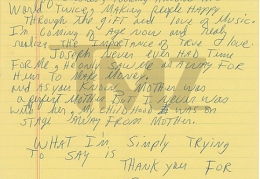 World Twice, Making People Happy
Through the gift and love of Music.
I'm Coming of Age now and Realy
realize The Importance of True Love
Joseph Never ever Had Time
For Me, He only Saw Me as a way For
Him To Make Money.
and as you know, Mother was
a perfect Mother But I never was
with her, My childhood was on
Stage Away From Mother.
What I'm Simply Trying
To Say is
Thank you For